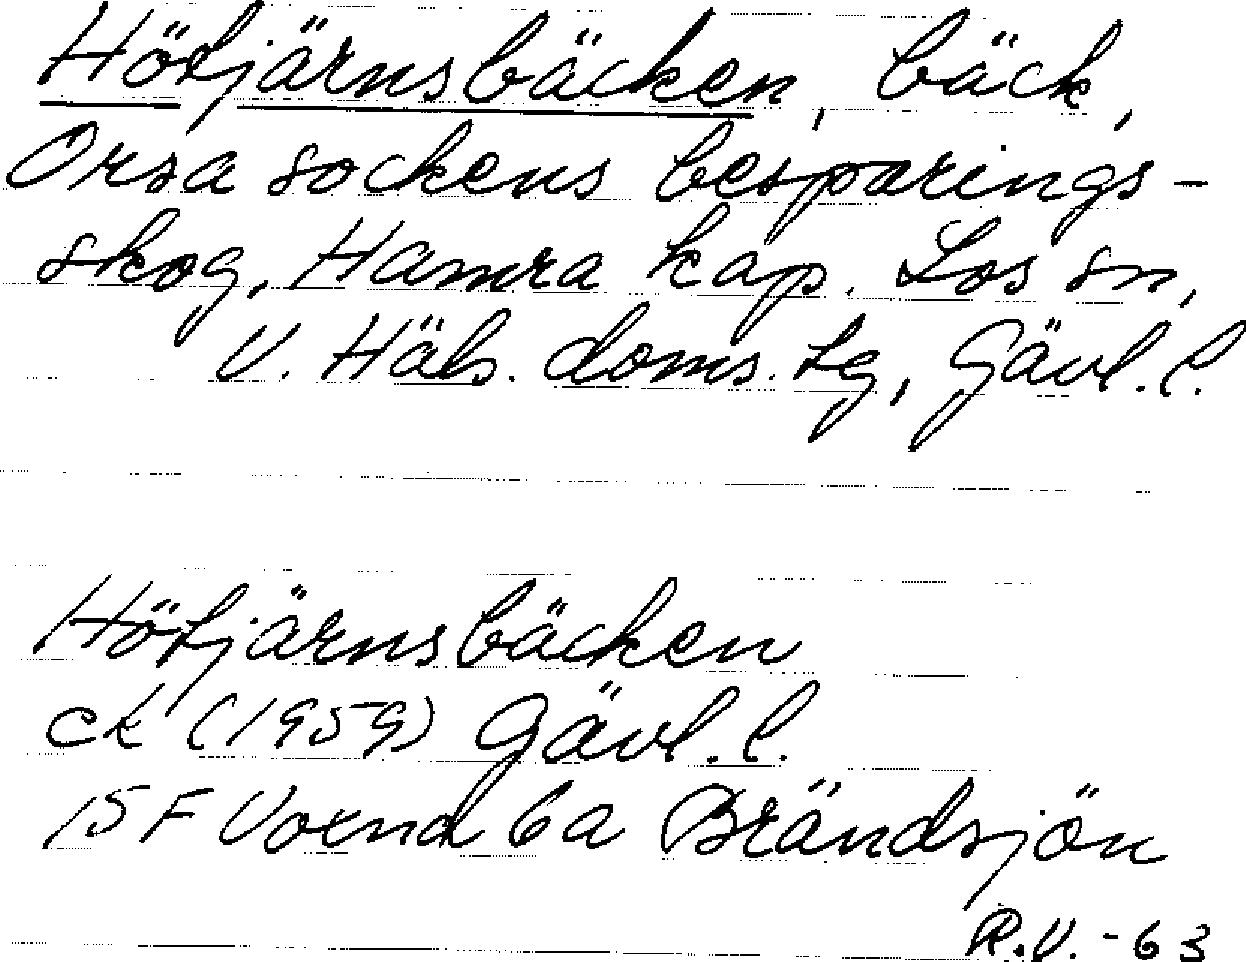 Hötjärnsbäcken, bäck,
Orsa sockens besparings-
skog, Hamra kap. Los sn,
V. Häls. doms. tg, Gävl. l.
Hötjärnsbäcken
ek (1959) Gävl. l.
15 F Voxna 6a Brändsjön
R.V. - 63